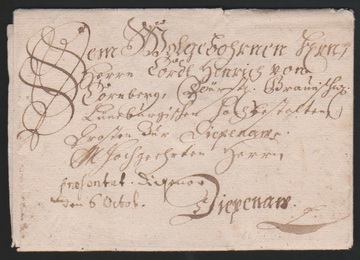 Dem Wolgebohrnen Herrn
Herrn Cordt Hinrich von
Cornberg, Fürstl. Braunschw.
Lüneburgischen
Drosten der Diepenaw.
Hochgeehrten Herrn
præsentat. Diepenaw
den 6 Octob.
Diepenaw.